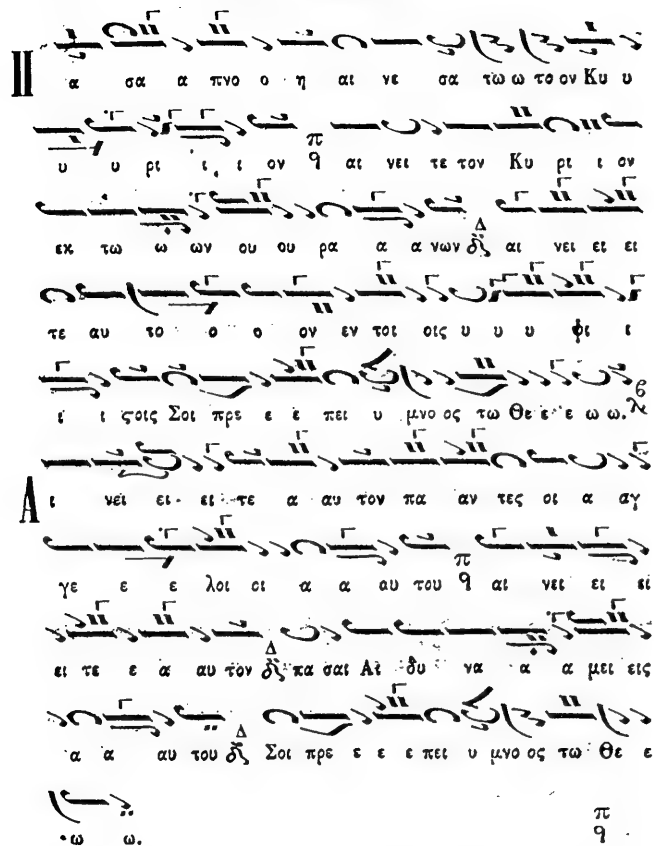 Π α σα α πνο ο η αι νε σα τω ω το ον Κυ υ
υ υ ρι ι ι ον π q αι νει τε τον Κυ ρι ι ον
εκ τω ω ων ου ου ρα α α νων Δ αι νει ει ει
τε αυ το ο ο ον εν τοι οις υ υ υ ψι ι
ι ι στοις Σοι πρε ε ε πει υ μνο ος τω Θε ε ε ω ω.
Α ι νει ει ει ει τε α αυ τον πα αν τες οι α αγ
γε ε ε λοι οι α α αυ του π q αι νει ει ει
ει τε ε α αυ τον Δ πα σαι Αι δυ να α α μεις εις
α α αυ του Δ Σοι πρε ε ε ε πει υ μνο ος τω Θε ε
ω ω. π q